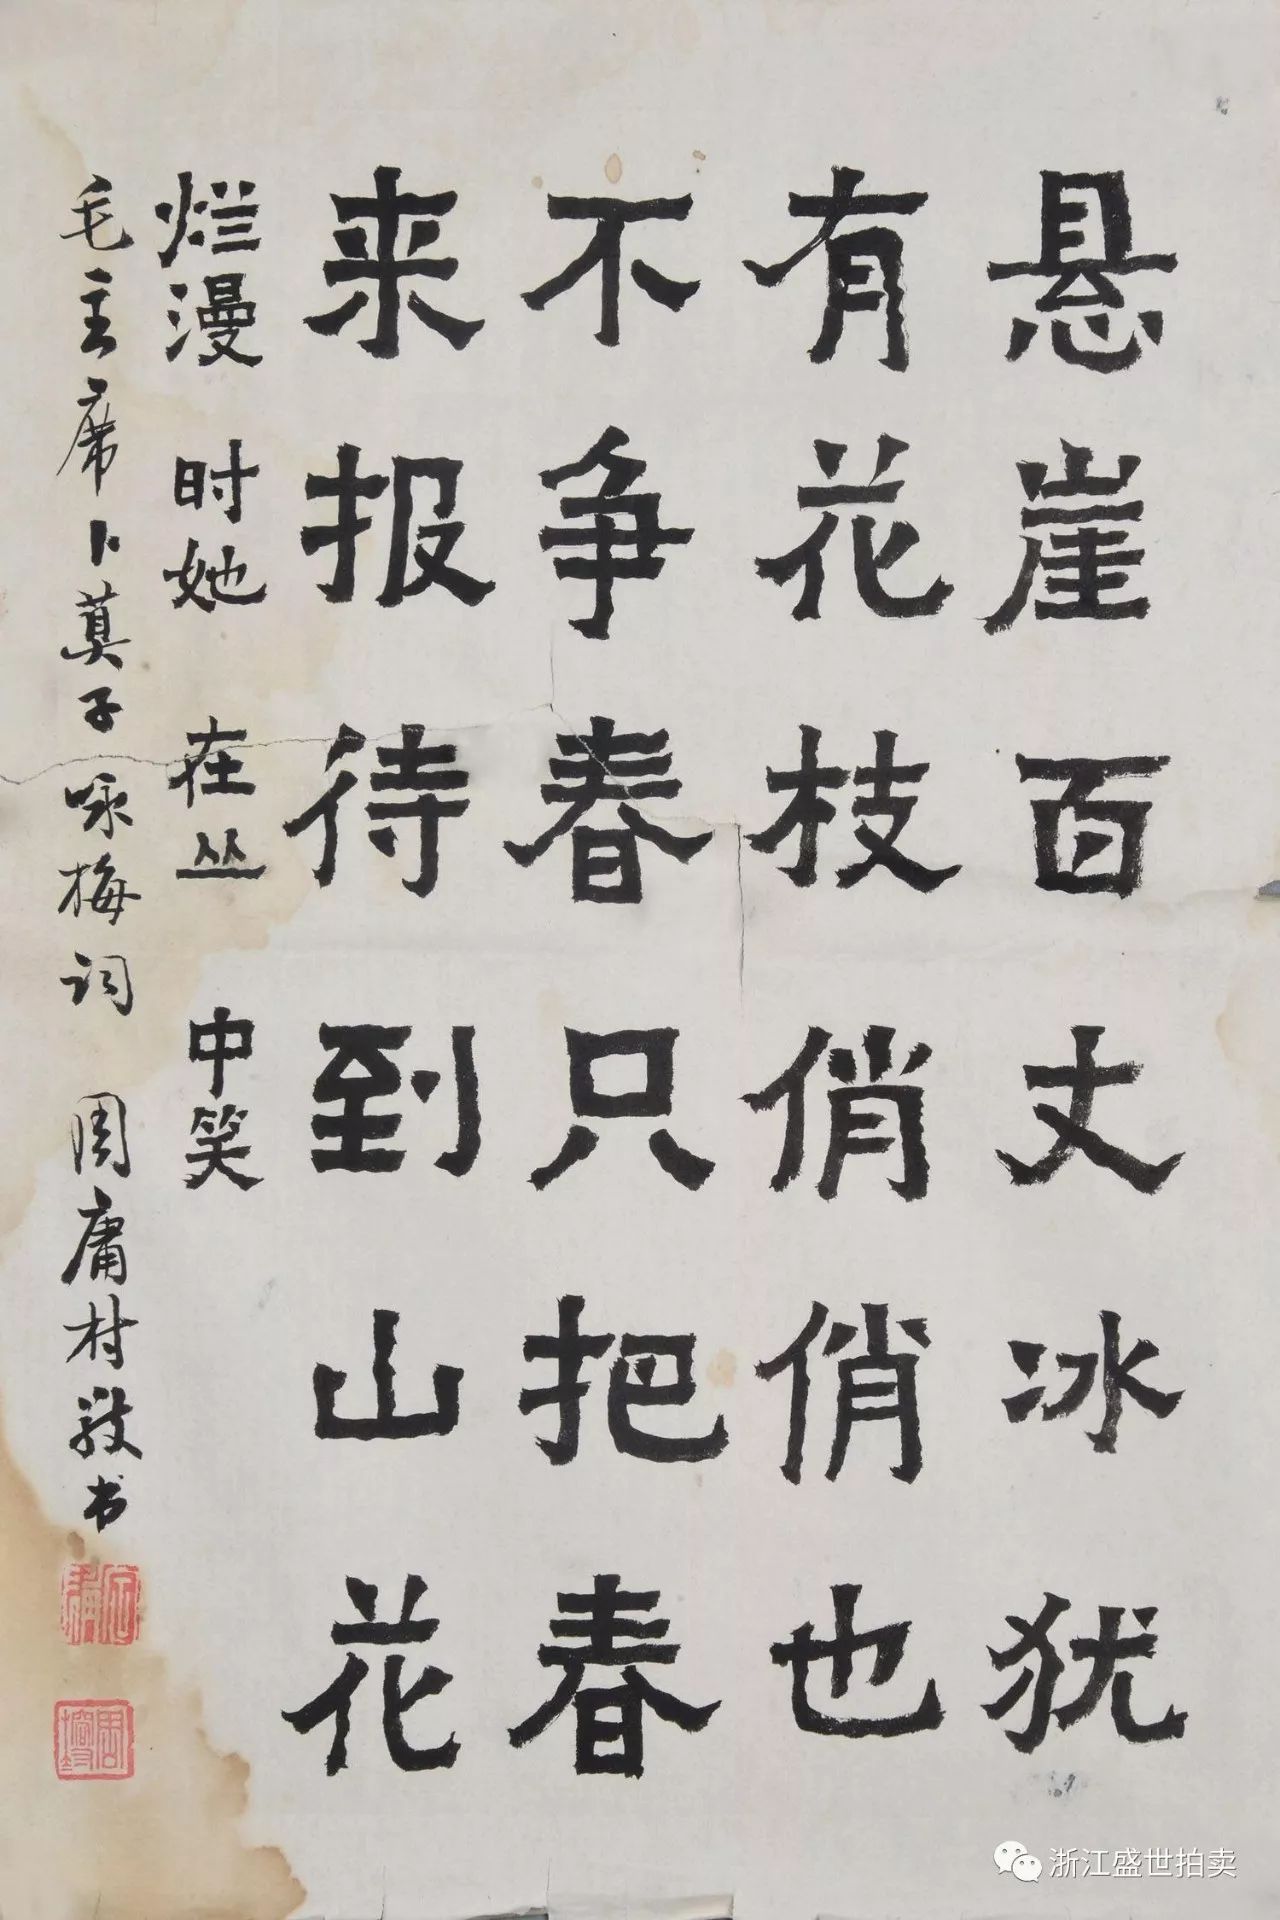 悬崖百丈冰犹
有花枝俏俏也
不争春只把春
来报待到山花
烂漫时她在丛中笑
毛主席卜莫子咏梅词 周庸村敬书
浙江盛世拍卖